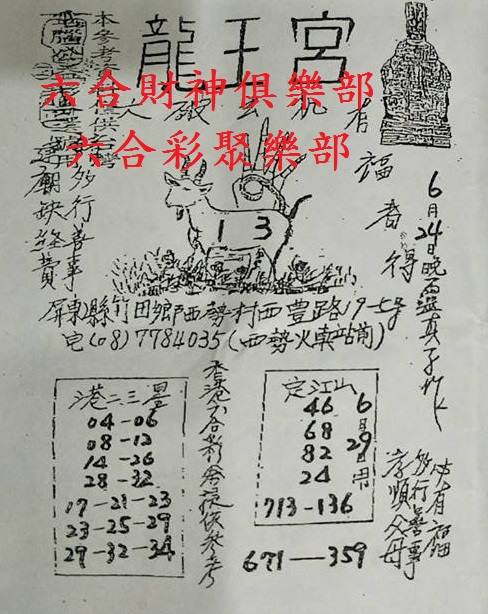 龍王宮
六合財神俱樂部
大破玄机
六合彩聚樂部
有福者得
本參考
多行善事
建廟缺經費
6月24日晚
13
屏東縣竹田鄉西勢村西豊路19-5号
宅(08)7784035(西勢火車站前)
港二三星
04-06
08-12
14-26
28-32
17-21-23
23-25-29
29-32-34
香港六合彩券提供參考
定江山
46
68
82
24
6月29日冊
713-136
671-359
多行善事必有福
孝順父母